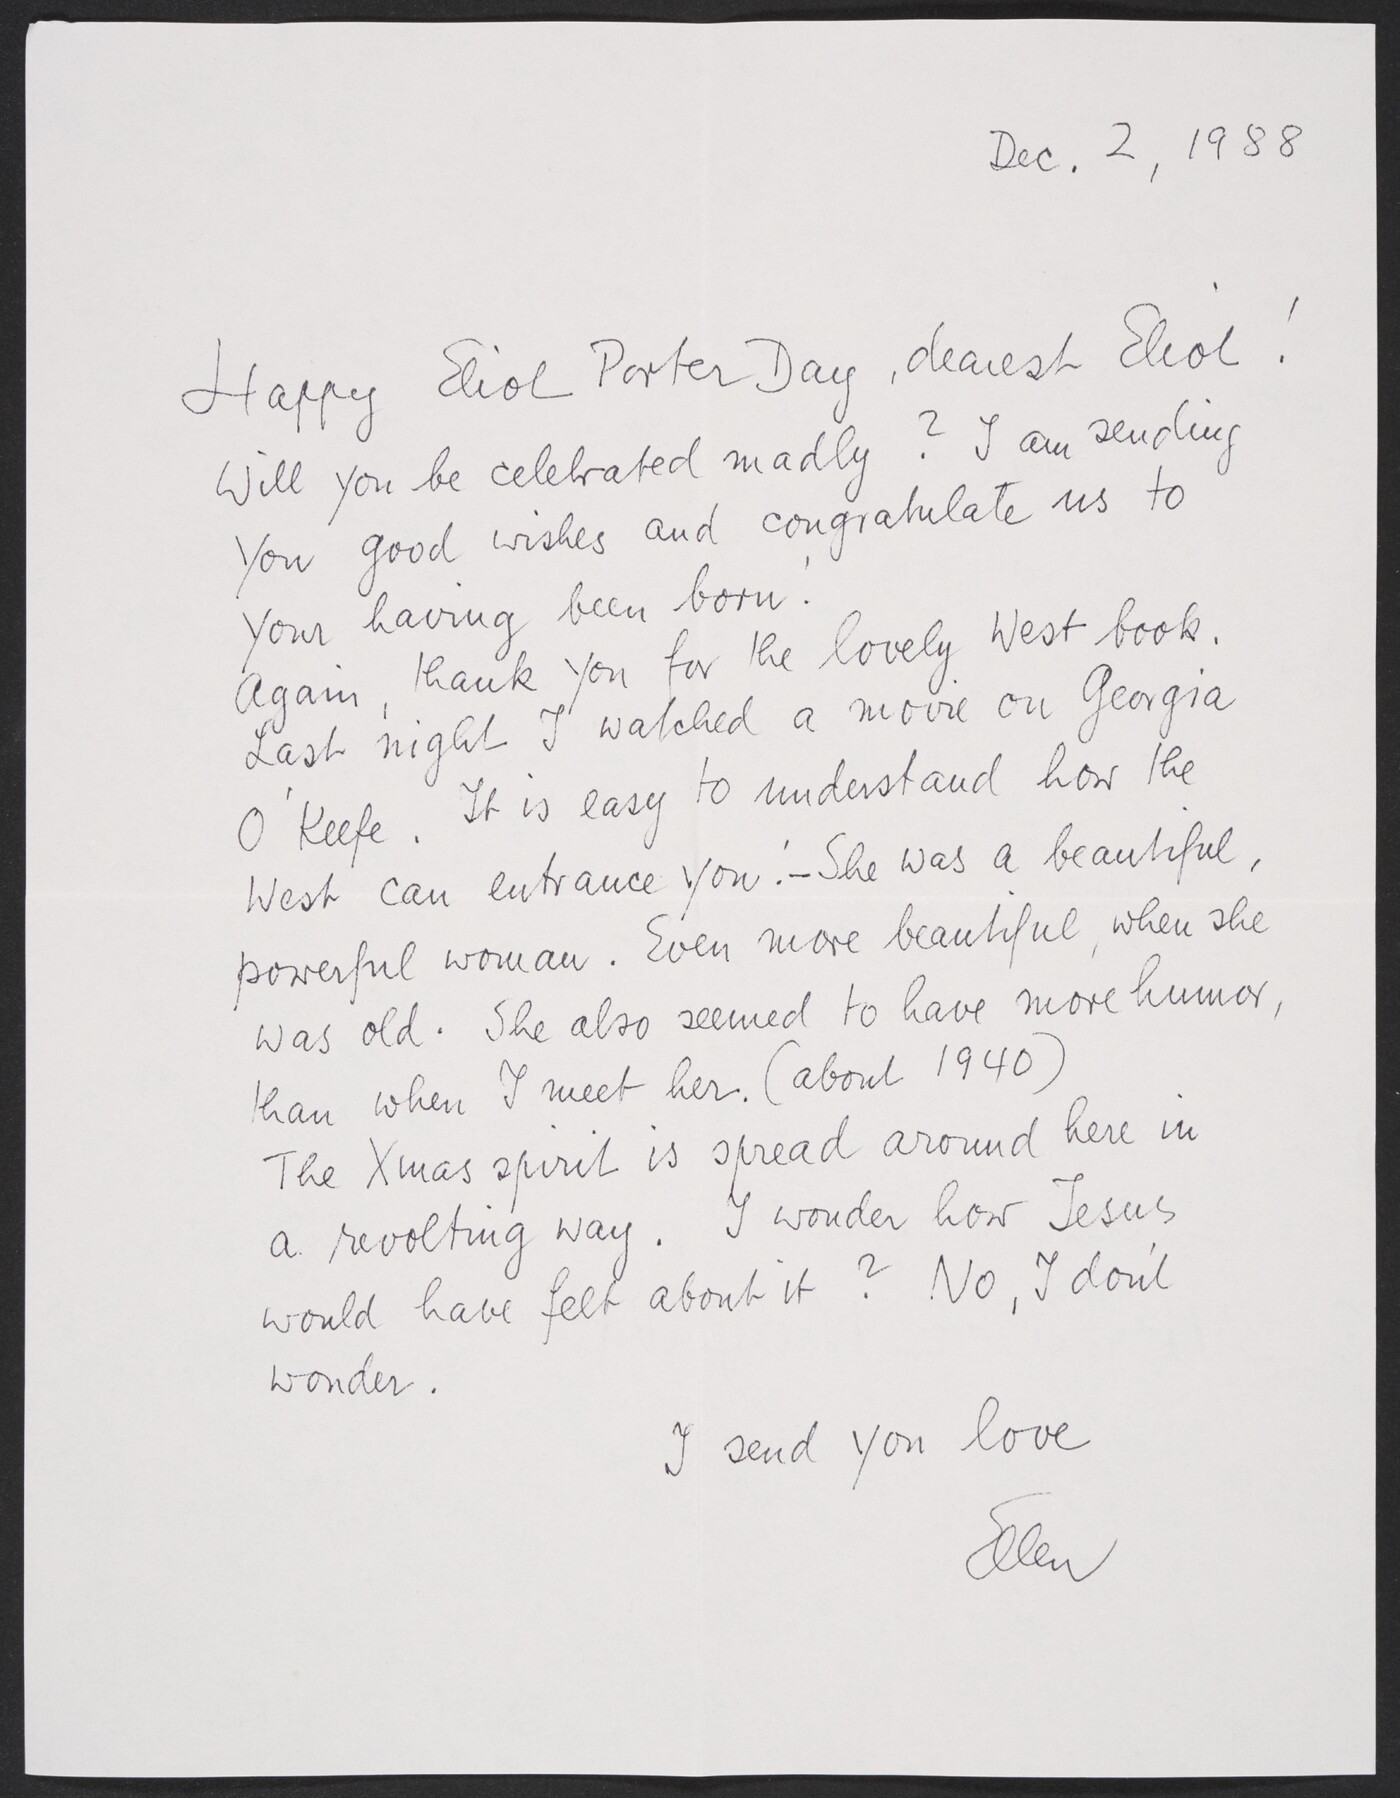 Dec. 2, 1988
Happy Eliot Porter Day, dearest Eliot!
Will you be celebrated madly? I am sending
you good wishes and congratulate us to
your having been born!
Again, thank you for the lovely West book.
Last night I watched a movie on Georgia
O'Keefe. It is easy to understand how the
West can entrance you! – She was a beautiful,
powerful woman. Even more beautiful, when she
was old. She also seemed to have more humor,
than when I meet her. (about 1940)
The Xmas spirit is spread around here in
a revolting way. I wonder how Jesus
would have felt about it? No, I don't
wonder.
I send you love
Ellen